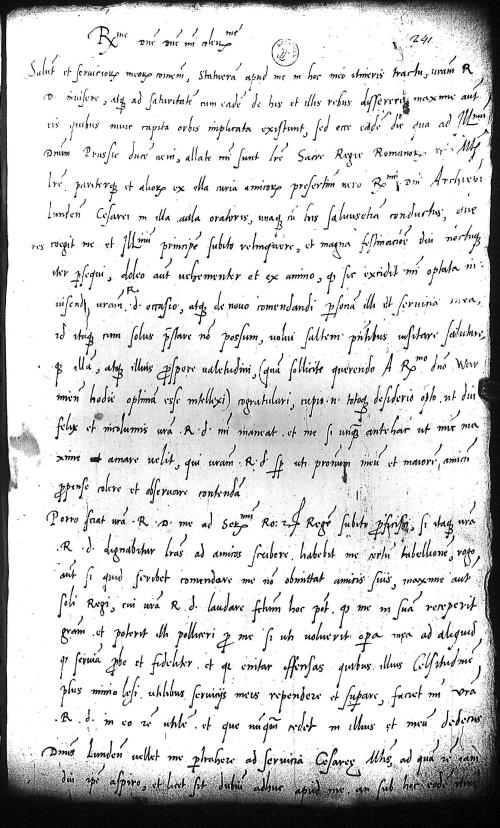 R^me Dne Dne mi clen^me
241
Salut et servicior meor comen, Statuera apud me in hoc meo itineris tractu, vram R
D. invisere, atq ad saturitate cum eade de his et illis rebus disserere, maxime aut
eis quibus nunc capita orbis implicata existunt, sed ecce eade die qua ad Ill^mu
Dnum Prussie duce veni, allate mi sunt lre Sacre Regie Romanor Mtis
lre pariterq et alior ex illa curia amicor presertim vero R^mi Dni Archiepi
Lunden Cesarei in illa aula oratoris, unaq cu his salvuscta conductus, que
res coegit me et Ill^mu principe subito relinquere, et magna festinacioe diu noctuq
iter psequi, doleo aut vehementer et ex animo, q sic excidit mi optata in
visendi vram R. d. occasio, atq de novo comendandi psona illi et servicia mea,
id itaq cum solus pstare no possum, volui saltem pntibus visitare salutare
q illa, atq illius pspere valetudini, (qua sollicite querendo A R^mo dno War
mien hodie optima esse intellexi) cogratulari, cupio n totoq desiderio opto, ut diu
felix et incolumis vra R. d. mi maneat, et me si unq antehac ut nuc ma
xime amare velit, qui vram R. d. sp uti pnu meu et maiore amicu
ppense colere et observare contenda
Porro sciat vra R. D. me ad Ser^mu Ro: Rege subito pficisci, si itaq vra
R. d. dignabitur lras ad amicos scribere, habebit me certu tabellione, rogo
aut si quid scribet comendare me no obmittat amicis suis, maxime aut
soli Regi, cui vra R. d. laudare felicu hoc pot. q me in sua receperit
gram, et poterit illi polliceri p me si uti voluerit opa mea ad aliquid
q servia pbe et fideliter, et q enitar offensas quibus illius Celsitudine
plus nimio lesi, utilibus serviciis meis rependere et supare, faciet mi vra
R. d. in eo re utile, et que nuqm cedet in illius et meu dedecus
Dnus Lunden vellet me ptrahere ad servicia Cesaree Mtis, ad qua re iam
diu ipe aspiro, et licet sit dubiu adhuc apud me, an sub hoc eode itinere